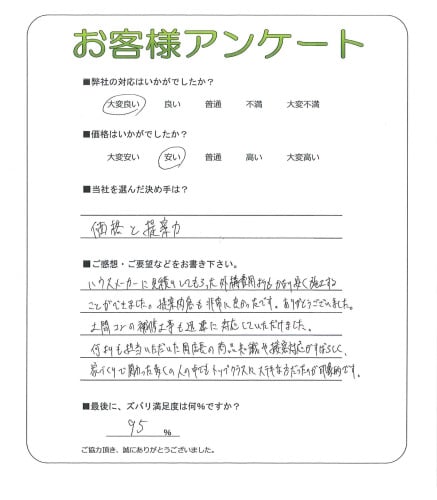 お客様アンケート
■弊社の対応はいかがでしたか？
大変良い 良い 普通 不満 大変不満
■価格はいかがでしたか？
大変安い 安い 普通 高い 大変高い
■当社を選んだ決め手は？
価格と提案力
■ご感想・ご要望などをお書き下さい。
ハウスメーカーに見積りしてもらった外構費用よりもかなり安く施工する
ことができました。提案内容も非常に良かったです。ありがとうございました。
土間コンの補修工事も迅速に対応していただけました。
何よりも担当いただいた店長の商品知識や接客対応がすばらしく、
家づくりで関わった多くの人の中でもトップクラスに大好きな方だったのが印象的です。
■最後に、ズバリ満足度は何％ですか？
95 ％
ご協力頂き、誠にありがとうございました。